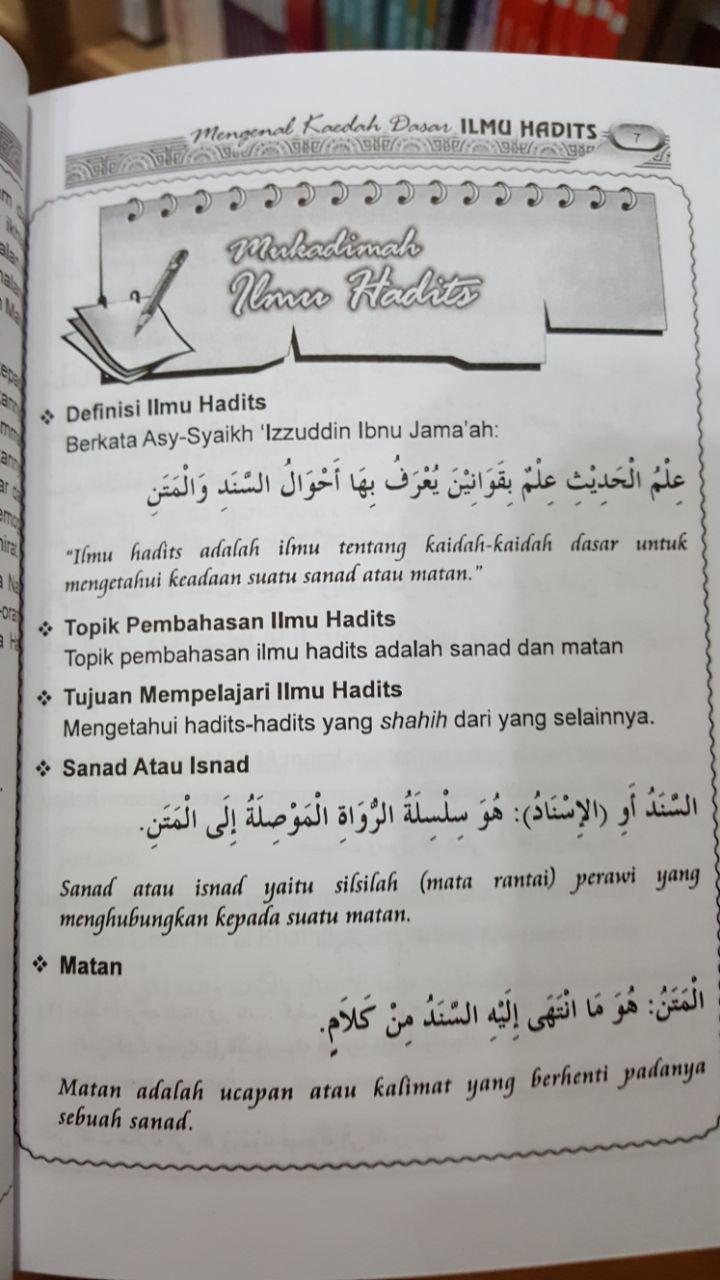 Mengenal Kaedah Dasar ILMU HADITS 7
Mukadimah
Ilmu Hadits
❖ Definisi Ilmu Hadits
Berkata Asy-Syaikh ‘Izzuddin Ibnu Jama’ah:
عِلْمُ الْحَدِيْثِ عِلْمٌ بِقَوَانِيْنَ يُعْرَفُ بِهَا أَحْوَالُ السَّنَدِ وَالْمَتَنِ
“Ilmu hadits adalah ilmu tentang kaidah-kaidah dasar untuk
mengetahui keadaan suatu sanad atau matan.”
❖ Topik Pembahasan Ilmu Hadits
Topik pembahasan ilmu hadits adalah sanad dan matan
❖ Tujuan Mempelajari Ilmu Hadits
Mengetahui hadits-hadits yang shahih dari yang selainnya.
❖ Sanad Atau Isnad
السَّنَدُ أَوِ (الإِسْنَادُ): هُوَ سِلْسِلَةُ الرُّوَاةِ الْمَوْصِلَةُ إِلَى الْمَتَنِ.
Sanad atau isnad yaitu silsilah (mata rantai) perawi yang
menghubungkan kepada suatu matan.
❖ Matan
الْمَتَنُ: هُوَ مَا انْتَهَى إِلَيْهِ السَّنَدُ مِنْ كَلَامٍ.
Matan adalah ucapan atau kalimat yang berhenti padanya
sebuah sanad.